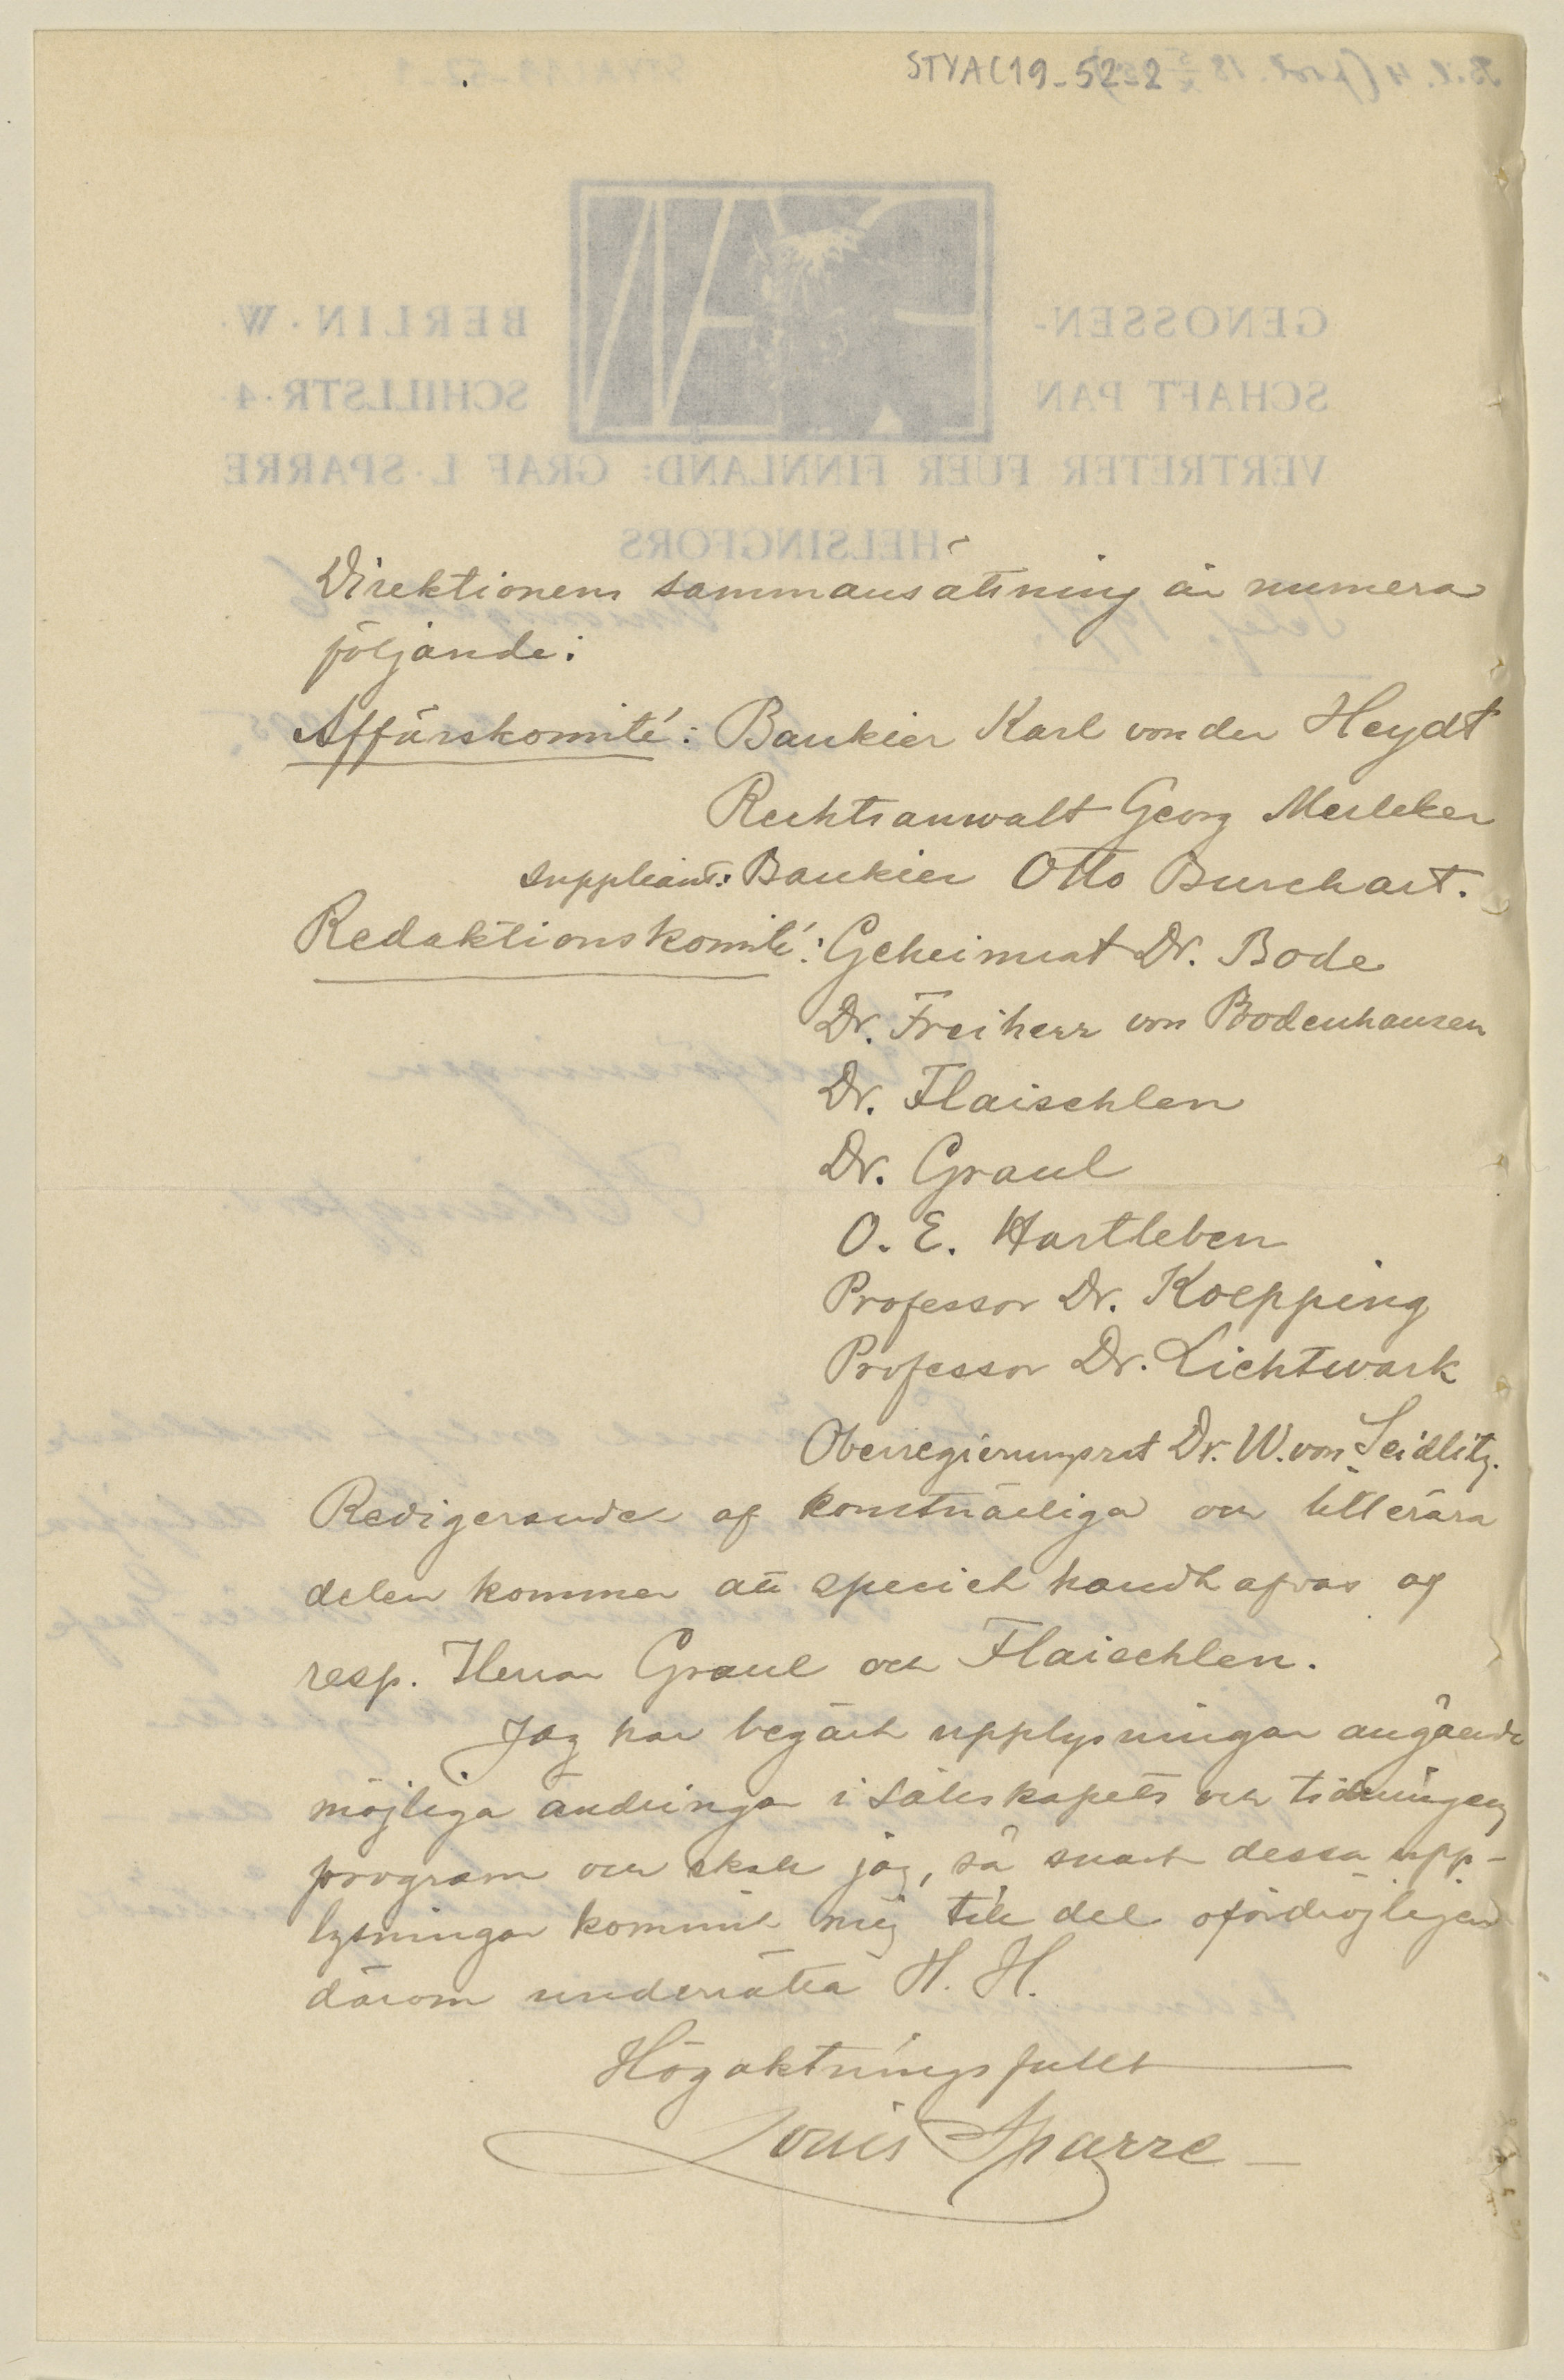 STYAC19-52-2
Direktionens sammansättning är numera
följande:
Affärskomité: Bankier Karl von der Heydt
Rechtsanwalt Georg Merleker
Suppleant: Bankier Otto Burchart.
Redaktionskomité: Geheimrat Dr. Bode
Dr. Freiherr von Bodenhausen
Dr. Flaischlen
Dr. Graul
O. E. Hartleben
Professor Dr. Koepping
Professor Dr. Lichtwark
Oberregierungsrat Dr. W. von Seidlitz.
Redigerandet af konstnärliga och litterära
delen kommer att specielt handhafvas af
resp. Herrar Graul och Flaischlen.
Jag har begärt upplysningar angående
möjliga ändringar i sällskapets och tidningens
program och skall jag, så snart dessa upp-
lysningar kommit mig till del ofördröjligen
därom underrätta H. H.
Högaktningsfullt
Louis Sparre
GENOSSEN-
SCHAFT PAN
BERLIN · W ·
SCHILLSTR · 4 ·
VERTRETER FUER FINNLAND: GRAF L · SPARRE
HELSINGFORS